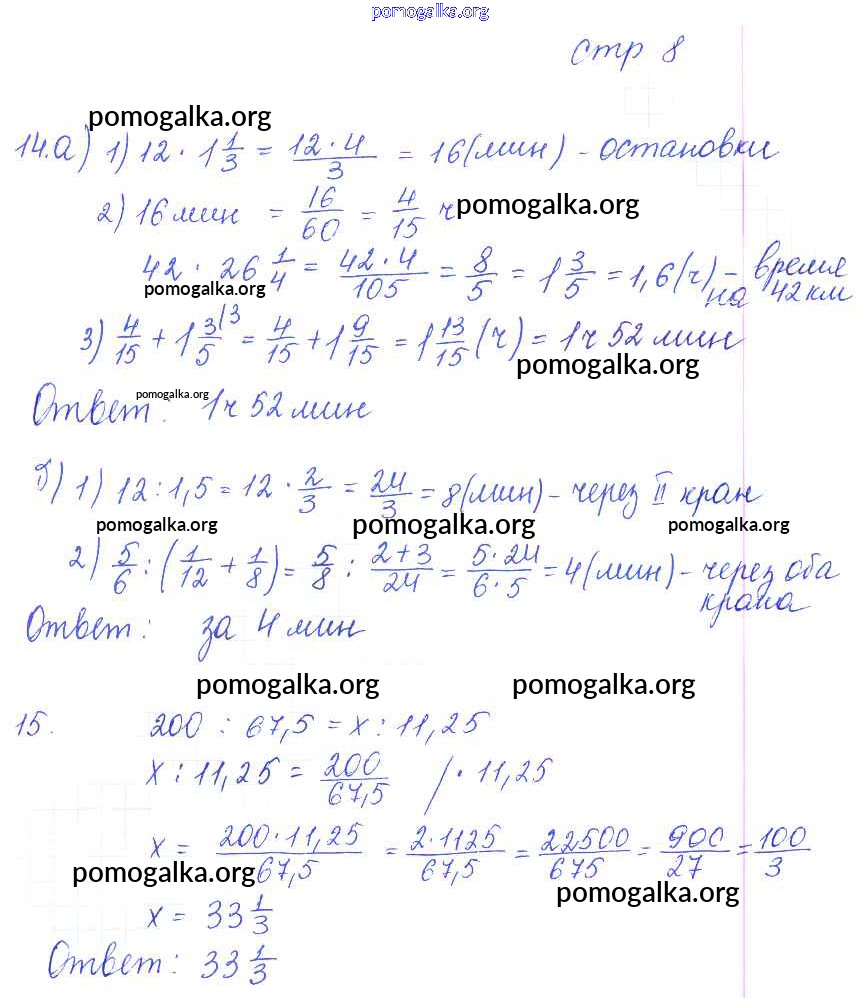 pomogalka.org
стр 8
pomogalka.org
14.а) 1) 12 · 1 1/3 = 12·4/3 = 16(мин) - остановки
2) 16 мин = 16/60 = 4/15 ч pomogalka.org
42 · 26 1/4 = 42·4/105 = 8/5 = 1 3/5 = 1,6(ч) - время на 42 км
pomogalka.org
3) 4/15 + 1 3/5 \3 = 4/15 + 1 9/15 = 1 13/15 (ч) = 1ч 52 мин
pomogalka.org
Ответ: pomogalka.org 1ч 52 мин
б) 1) 12 : 1,5 = 12 · 2/3 = 24/3 = 8(мин) - через II кран
pomogalka.org pomogalka.org pomogalka.org
2) 5/6 : (1/12 + 1/8) = 5/8 : 2+3/24 = 5·24/6·5 = 4(мин) - через оба крана
Ответ: за 4 мин
pomogalka.org pomogalka.org
15. 200 : 67,5 = x : 11,25
x : 11,25 = 200/67,5 / · 11,25
x = 200·11,25/67,5 = 2·1125/67,5 = 22500/675 = 900/27 = 100/3
pomogalka.org pomogalka.org
x = 33 1/3
Ответ: 33 1/3